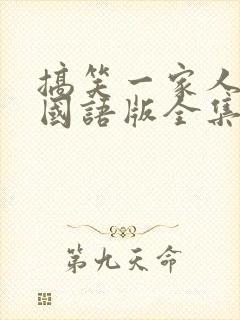 搞笑一家人
國語版全集
第九天命